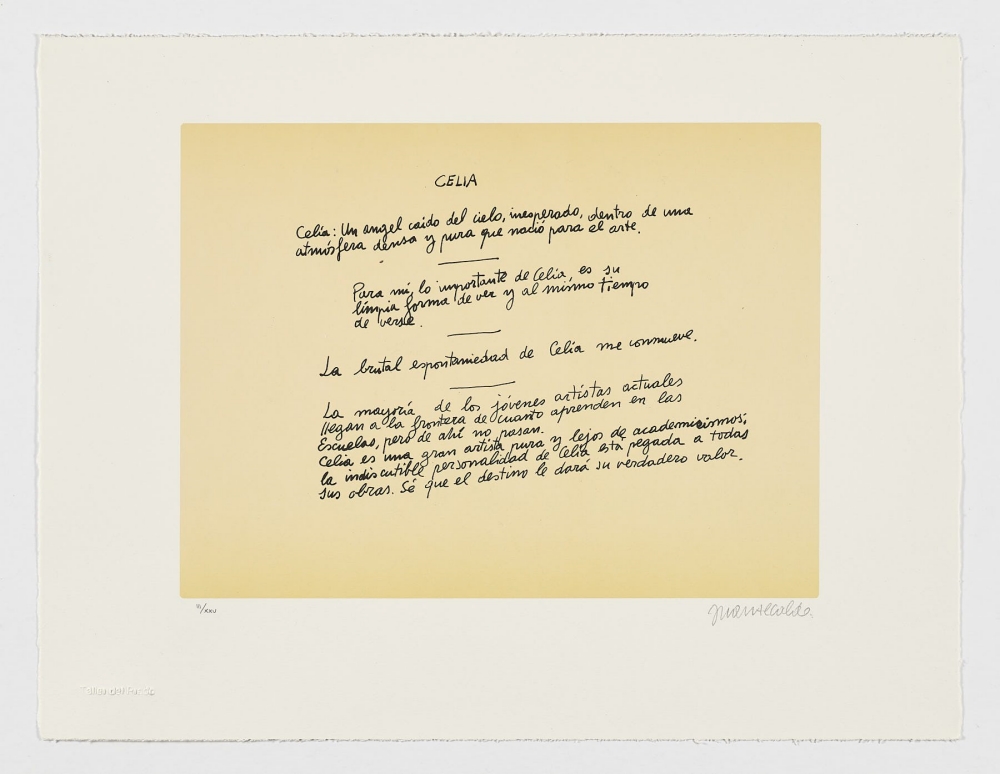 CELIA
Celia: Un angel caido del cielo, inesperado, dentro de una
atmósfera densa y pura que nació para el arte.
Para mí, lo importante de Celia, es su
limpia forma de ver y al mismo tiempo
de verse.
La brutal espontaniedad de Celia me conmueve.
La mayoría de los jóvenes artistas actuales
llegan a la frontera de cuanto aprenden en las
Escuelas, pero de ahí no pasan.
Celia es una gran artista pura y lejos de academicismos;
la indiscutible personalidad de Celia está pegada a todas
sus obras. Sé que el destino le dará su verdadero valor.
/XXV